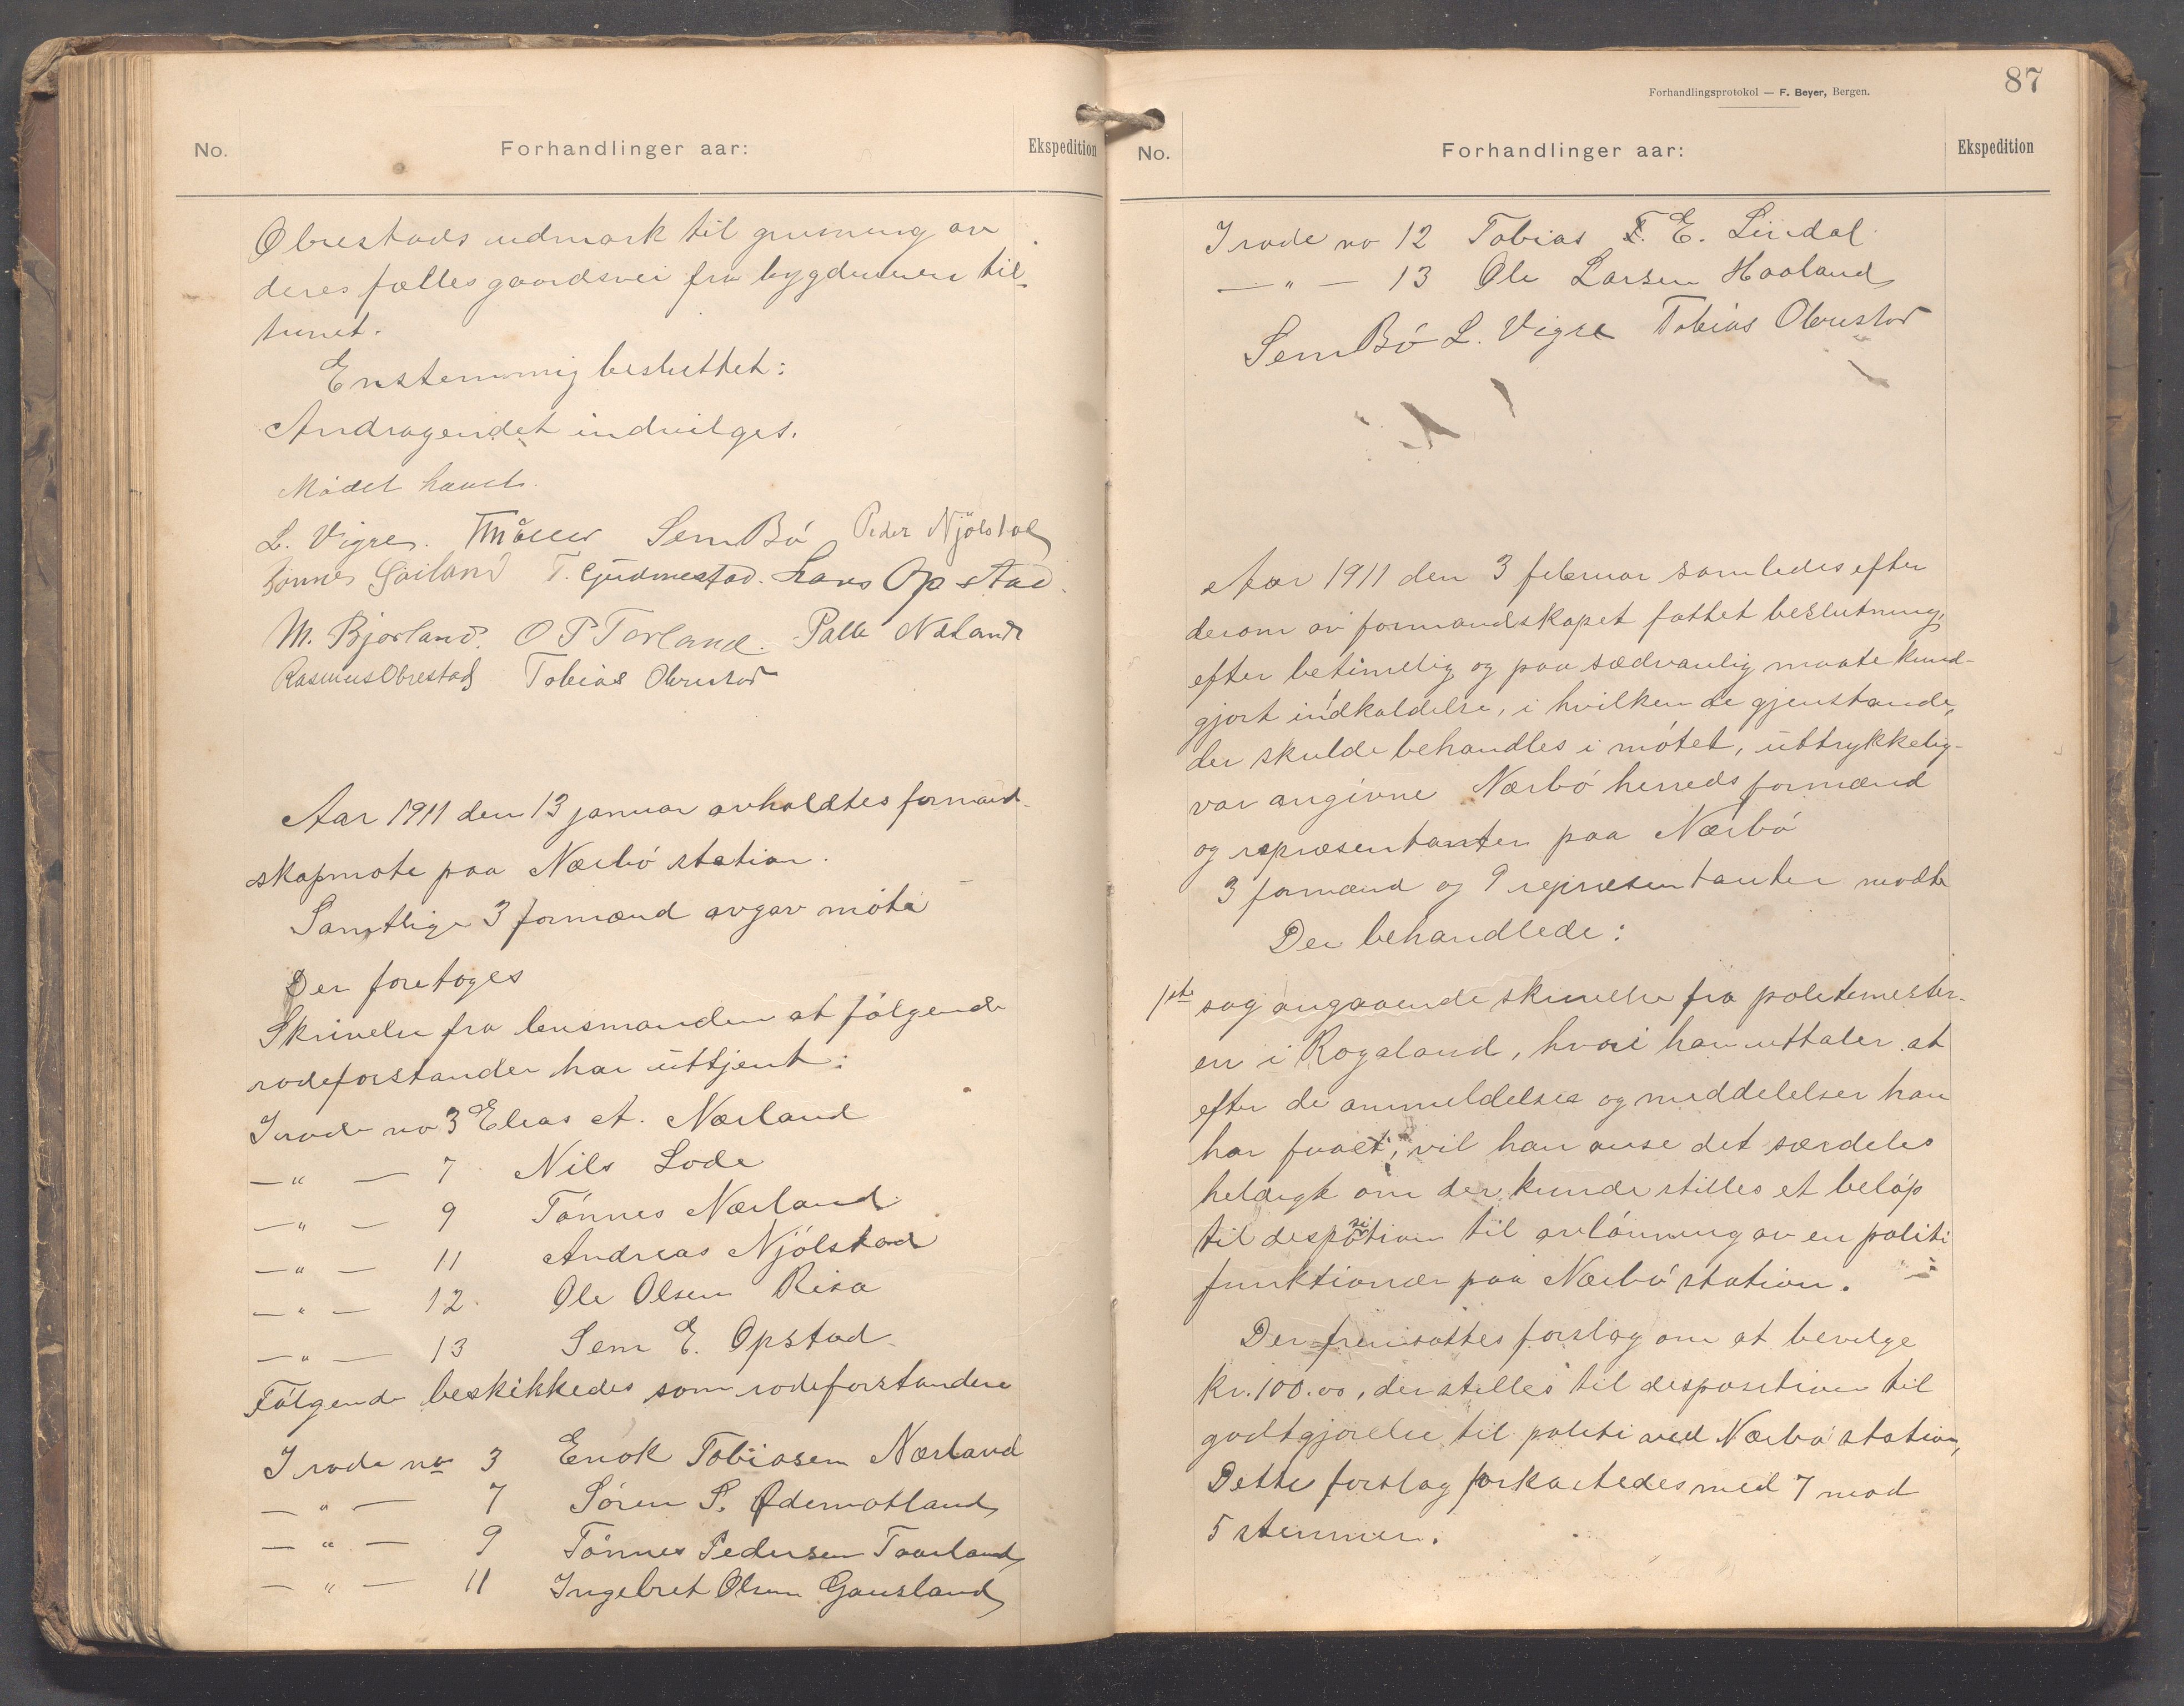 No.
Forhandlinger aar:
Ekspedition
Obrestads udmark til grusning av
deres fælles gaardsvei fra bygdeveien til
tunet.
Enstemmig besluttet:
Andragendet indvilges.
Mødet hævet.
L. Vigre. Sem Bø Peder Njølstad
Tønnes T. Gudmestad. Lars Opstad.
M. Bjorland. O P Torland. Palle Næland
Rasmus Obrestad Tobias Obrestad
Aar 1911 den 13 januar avholdtes formand-
skapmøte paa Nærbø station.
Samtlige 3 formænd avgav møte
Der foretoges
Skrivelse fra lensmanden at følgende
rodeforstander har uttjent:
I rode no 3 Elias A. Nærland
— " — 7 Nils Lode
— " — 9 Tønnes Nærland
— " — 11 Andreas Njølstad
— " — 12 Ole Olsen Risa
— " — 13 Sem E. Opstad
Følgende beskikkedes som rodeforstandere
I rode no 3 Enok Tobiasen Nærland
— " — 7 Søren S. Ødemotland
— " — 9 Tønnes Pedersen Taarland
— " — 11 Ingebret Olsen Gausland
87
Forhandlingsprotokol — F. Beyer, Bergen.
No.
Forhandlinger aar:
Ekspedition
I rode no 12 Tobias E. Lindal
— " — 13 Ole Larsen Haaland
Sem Bø L. Vigre Tobias Obrestad
Aar 1911 den 3 februar samledes efter
derom av formandskapet fattet beslutning,
efter betimelig og paa sædvanlig maate kund-
gjort indkaldelse, i hvilken de gjenstande,
der skulde behandles i møtet, uttrykkelig
var angivne Nærbø herreds formænd
og repræsentanter paa Nærbø
3 formænd og 9 repræsentanter mødte
Der behandlede:
1ste sag angaaende skrivelse fra politimester-
en i Rogaland, hvori han uttaler at
efter de anmeldelser og meddelelser han
har faaet, vil han anse det særdeles
heldigt om der kunde stilles et beløp
til desposition til avlønning av en politi
funktionær paa Nærbø station.
Der fremsattes forslag om at bevilge
kr. 100.00, der stilles til desposition til
godtgjørelse til politi ved Nærbø station,
Dette forslag forkastedes med 7 mod
5 stemmer.